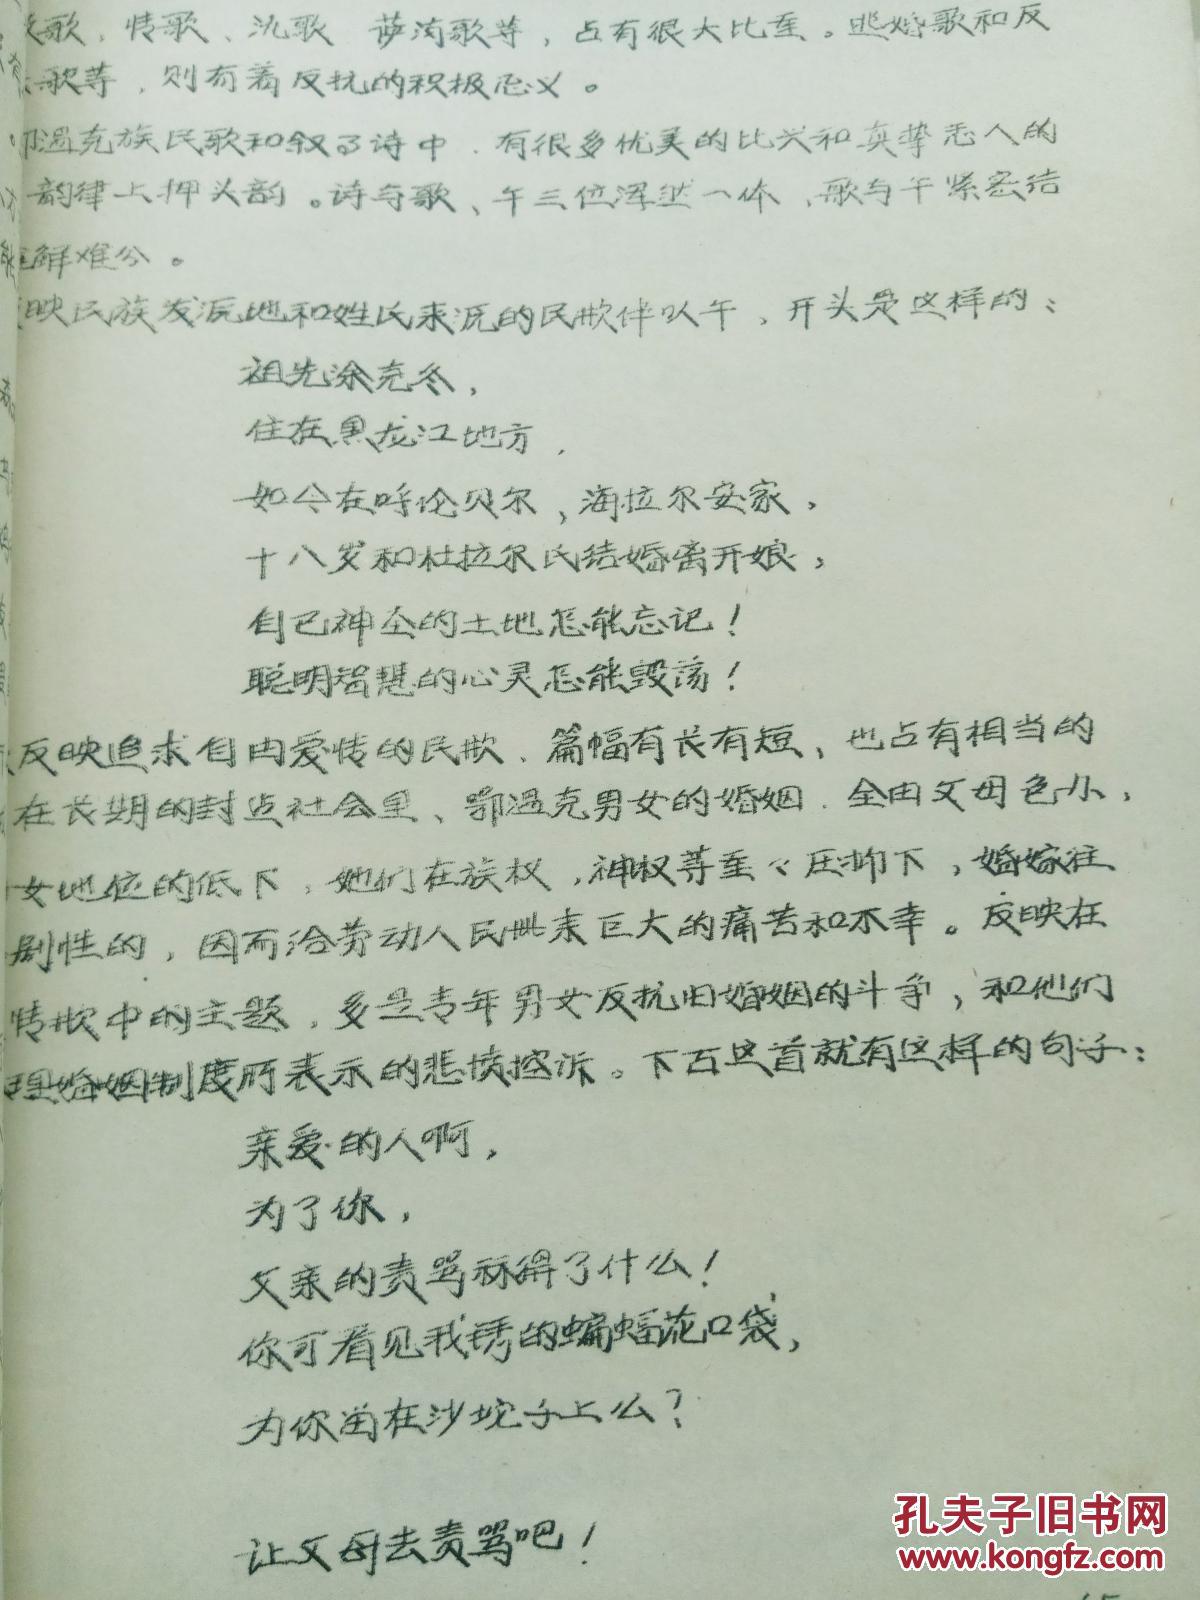 歌，情歌、氿歌 萨满歌等，占有很大比重。逃婚歌和反
歌等，则有着反抗的积极意义。
温克族民歌和叙事诗中，有很多优美的比兴和真挚
韵律上押头韵。诗与歌、午三位浑然一体，歌与午紧密结
解难分。
映民族发源地和姓氏来源的民歌伴以午，开头是这样的：
祖先涂克冬，
住在黑龙江地方，
如今在呼伦贝尔，海拉尔安家，
十八岁和杜拉尔氏结婚离开娘，
自己神圣的土地怎能忘记！
聪明智慧的心灵怎能毁荡！
反映追求自由爱情的民歌、篇幅有长有短、也占有相当的
在长期的封建社会里、鄂温克男女的婚姻，全由父母包办，
女地位的低下，她们在族权，神权等重々压抑下，婚嫁往
剧性的，因而给劳动人民带来巨大的痛苦和不幸。反映在
情歌中的主题，多是青年男女反抗旧婚姻的斗争，和他们
理婚姻制度所表示的悲愤控诉。下面这首就有这样的句子：
亲爱的人啊，
为了你，
父亲的责骂称得了什么！
你可看见我锈的蝙蝠花口袋，
为你留在沙坨子上么？
让父母去责骂吧！
孔夫子旧书网
www.kongfz.com